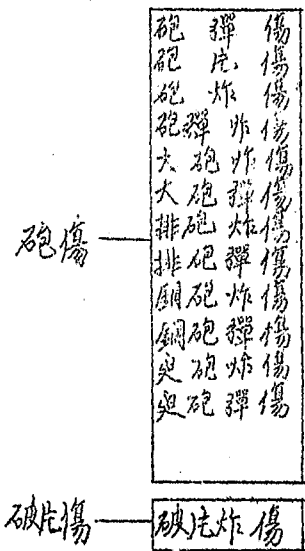 砲傷
砲彈傷
砲片傷
砲炸傷
砲彈炸傷
大砲炸傷
大砲彈傷
排砲炸傷
排砲彈傷
鋼砲炸傷
鋼砲彈傷
迫砲炸傷
迫砲彈傷
破片傷
破片炸傷